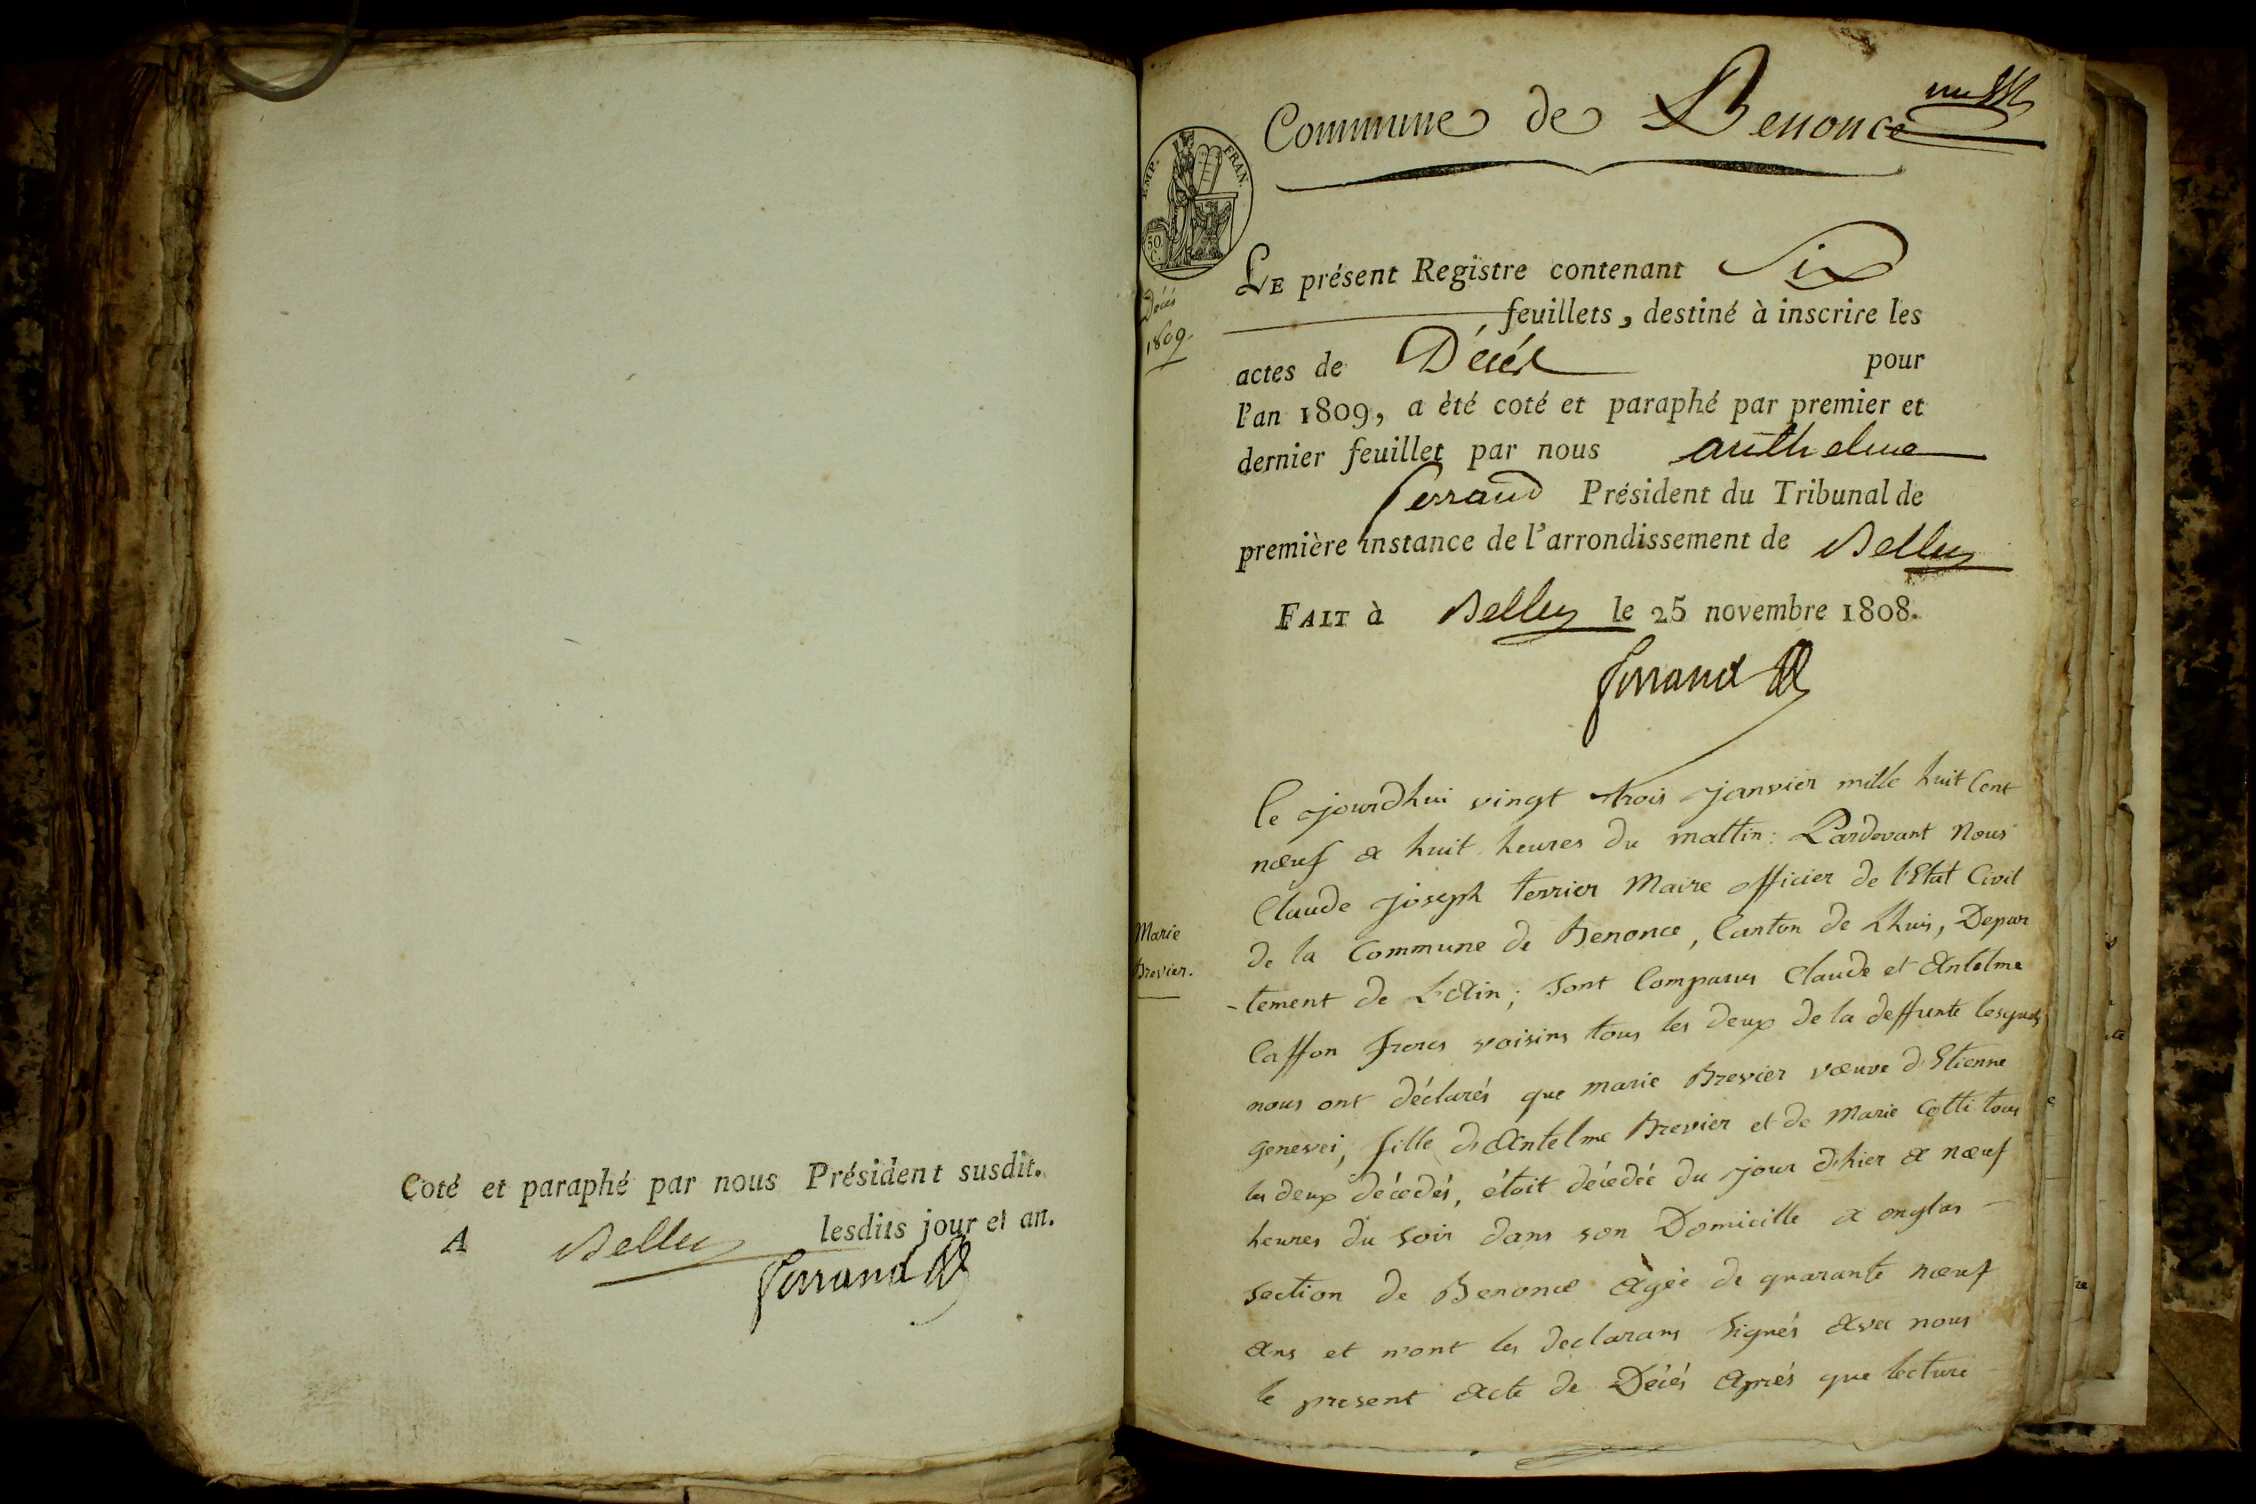 Coté et paraphé par nous Président susdit.
A Belley lesdits jour et an.
Ferrand
Commune de Benonce
EMP. FRAN.
50 C.
Décés
1809.
LE présent Registre contenant Six
feuillets, destiné à inscrire les
actes de Décés pour
l'an 1809, a été coté et paraphé par premier et
dernier feuillet par nous anthelme
ferrand Président du Tribunal de
première instance de l'arrondissement de Belley
FAIT à Belley le 25 novembre 1808.
Ferrand
Marie
Brevier.
Ce jourdhui vingt trois janvier mille huit Cent
nœuf a huit heures du mattin : Pardevant Nous
Claude joseph terrier Maire officier de l'Etat Civil
de la Commune de Benonce, Canton de Lhuis, Depar
-tement de L'Ain ; sont Comparus Claude et Antelme
Caffon freres voisins tous les deux de la deffunte lesquels
nous ont déclarés que marie Brevier vœuve d'Etienne
genevei, fille d'Antelme Brevier et de Marie Cotti tous
les deux décedés, étoit décedée du jour d'hier a nœuf
heures du soir dans son Domicille a onglas
section de Benonce Agée de quarante nœuf
Ans et n'ont les declarans signés Avec nous
le present Acte de Décés Aprés que lecture